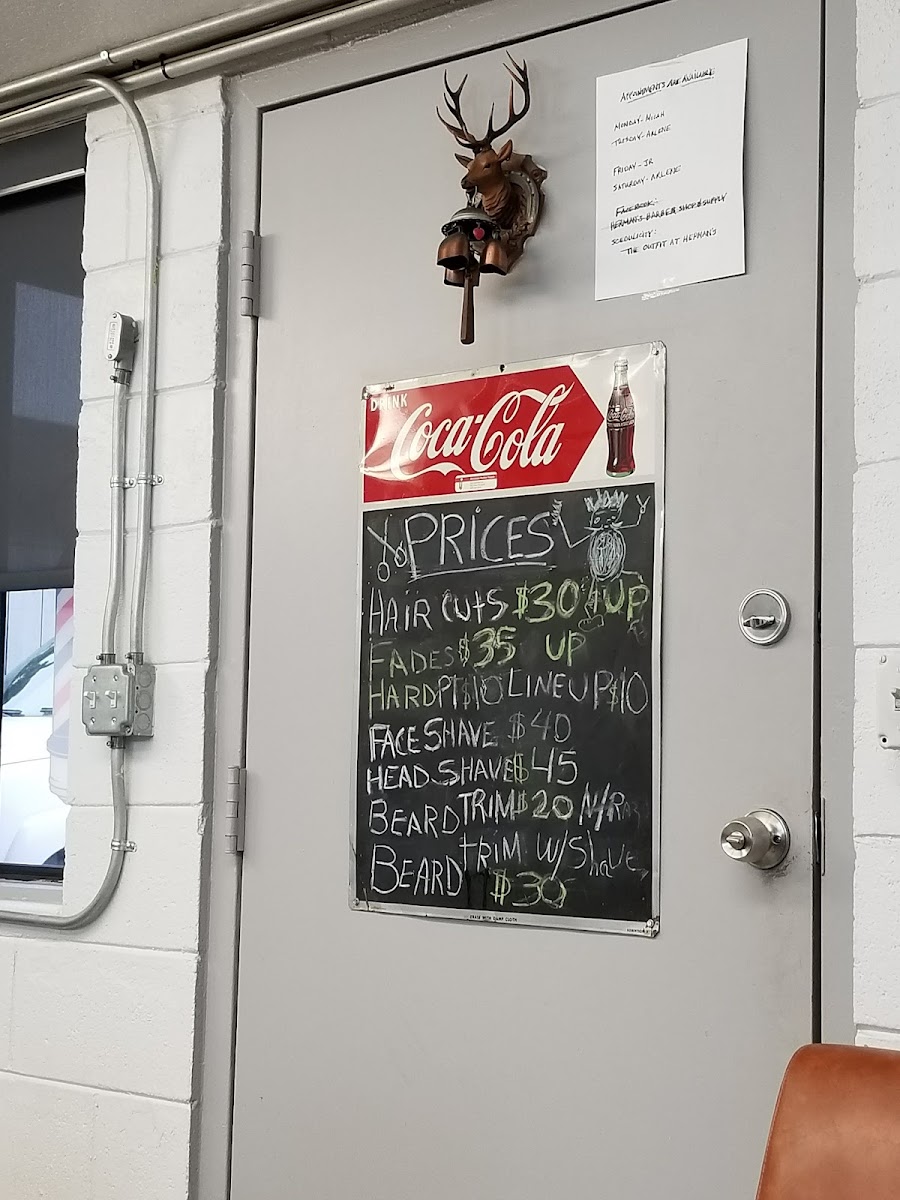 APPOINMENTS ARE AVAILABLE
TUESDAY- ARLENE
FRIDAY - JR
SATURDAY- ARLENE
FACEBOOK:
HERMAN'S BARBER SHOP & SUPPLY
SCHDULICITY:
THE OUTFIT AT HERMAN'S
DRINK
Coca-Cola
Coca-Cola
PRICES
HAIR CUTS $30 + UP
FADES $35 UP
HARD PT $10 LINE UP $10
FACE SHAVE $40
HEAD SHAVE $45
BEARD TRIM $20 N/RAZ
BEARD TRIM W/Shave
$30
ERASE WITH DAMP CLOTH